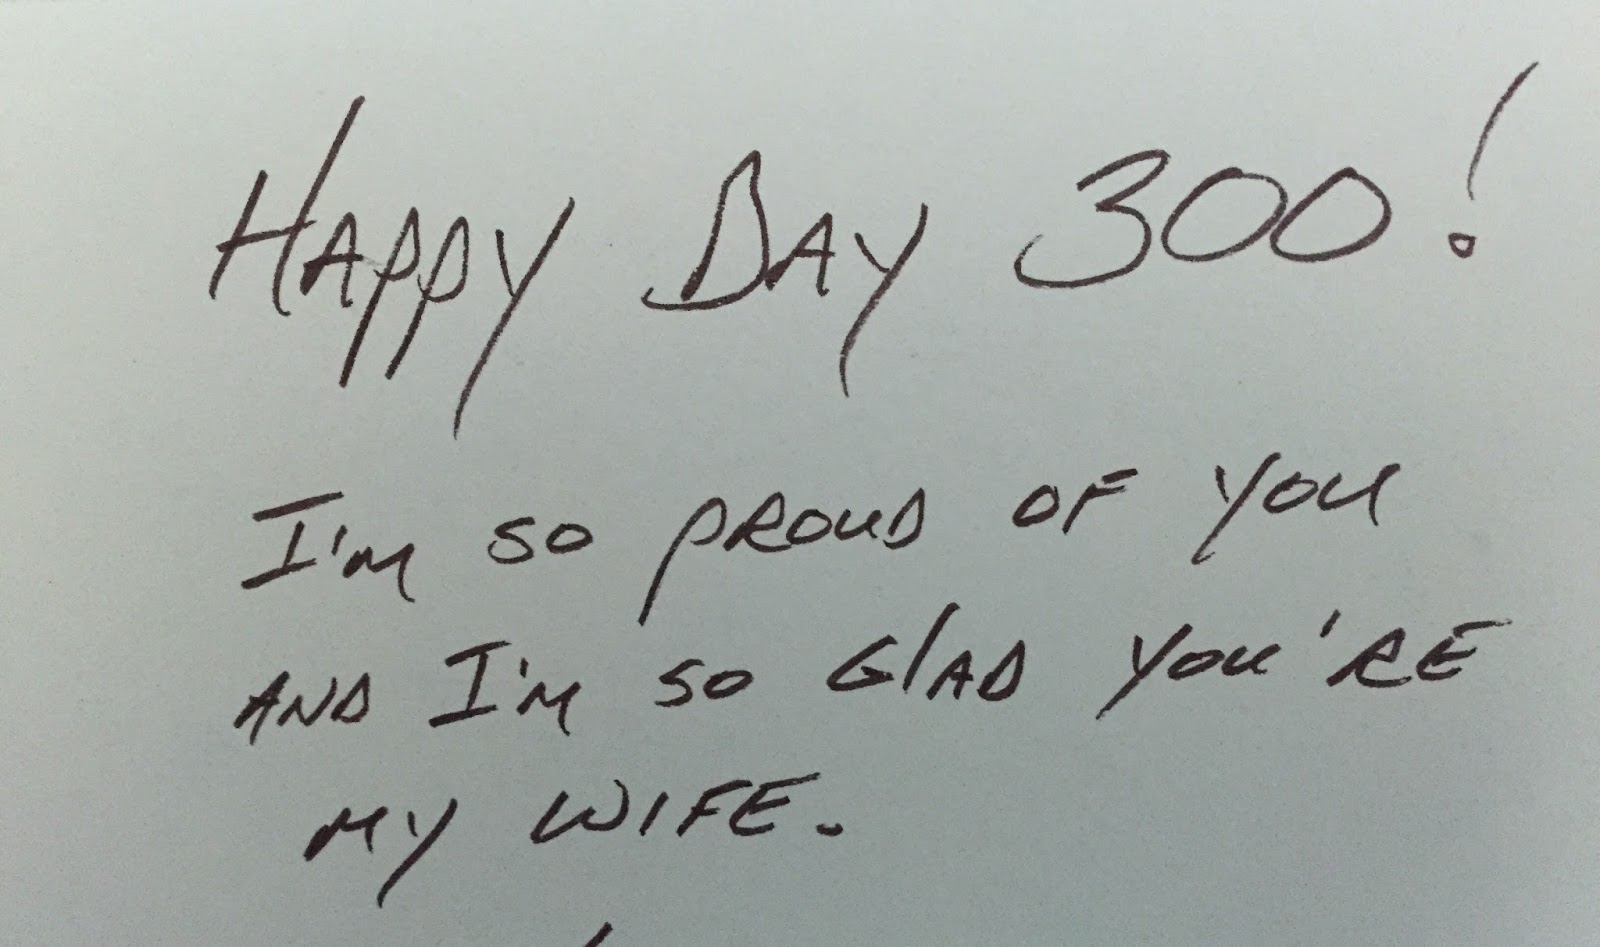 Happy Day 300!
I'm so proud of you
and I'm so glad you're
my wife.